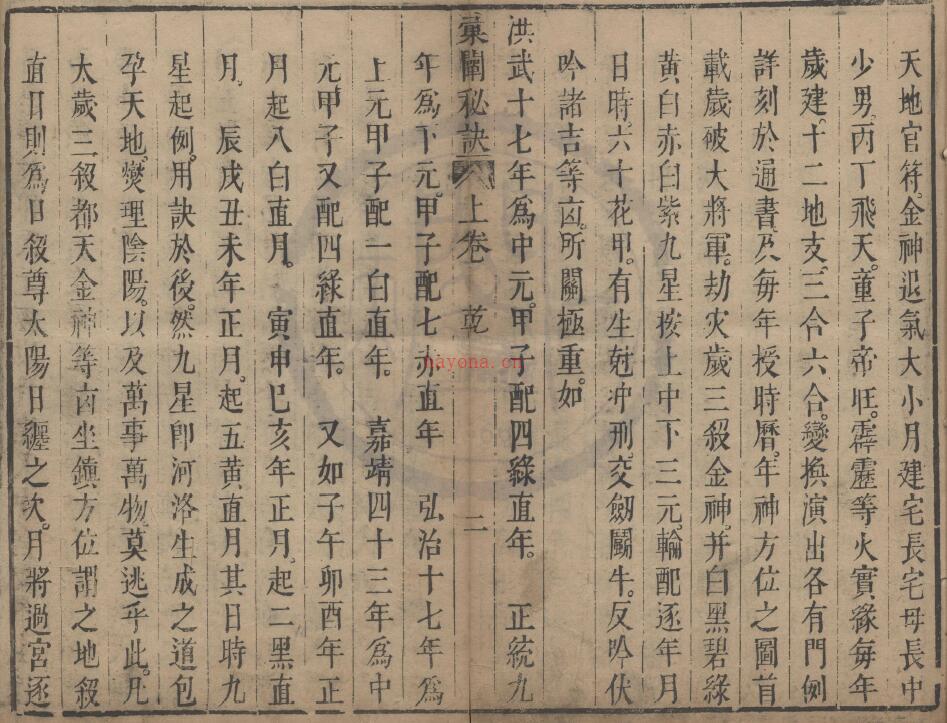 天地官符。金神退氣大小月建宅長宅母長中
少男。丙丁飛天。童子帝旺。霹靂等火實緣每年
歲建。十二地支。三合六合。變換演出各有門例
詳刻於通書及每年授時曆。年神方位之圖首
載歲破大將軍。劫灾歲三殺金神。并白黑碧綠
黃白赤白紫九星按上中下三元。輪配逐年月
日時。六十花甲。有生尅冲刑。交劔鬭牛。反吟伏
吟諸吉等凶。所關極重如
洪武十七年為中元。甲子配四綠直年。 正統九
秘訣 上卷 乾 二
年為下元。甲子配七赤直年 弘治十七年為
上元甲子配一白直年。 嘉靖四十三年為中
元甲子又配四綠直年。 又如子午卯酉年正
月起八白直月。 寅申巳亥年正月。起二黑直
月。 辰戌丑未年正月。起五黃直月其日時九
星起例。用訣於後。然九星即河洛生成之道包
孕天地。燮理陰陽。以及萬事萬物。莫逃乎此。凡
太歲三殺都天金神等凶坐鎮方位謂之地殺
直日則為日殺尊太陽日纏之次。月將過宮逐
nayona.cn